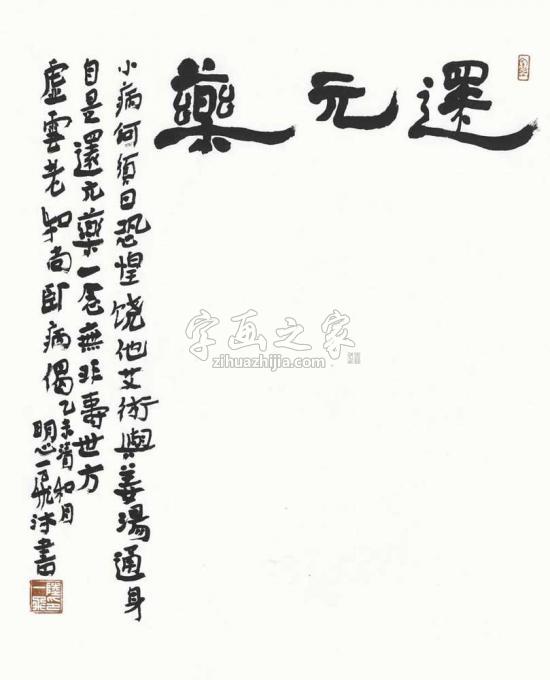 還元藥
小病何須日恐惶饶他艾術與姜湯通身
自是還元藥一念無非壽世方
虛雲老和尚卧病偈乙未清和月
明心一飛沐書
字画之家
zihuazhijia.com